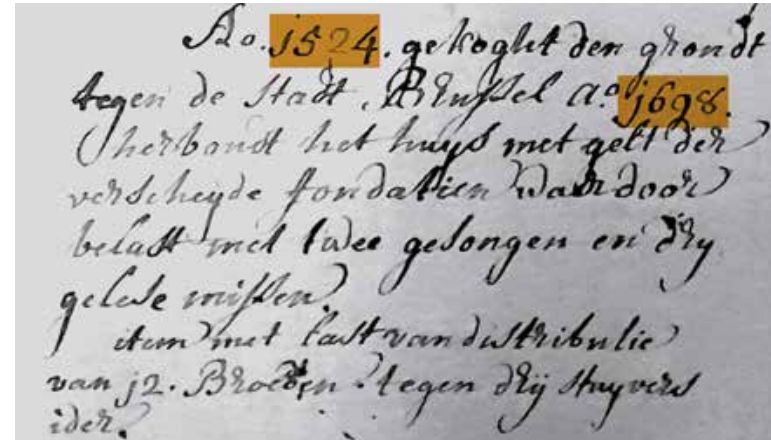 Ao. j524. gekoght den grondt
tegen de Stadt Brussel a.o j698.
herbouwt het huys met gelt der
verscheyde fondatien waer door
belast met twee gesongen en dry
gelese missen.
item met last van distributie
van j2. Brooden tegen drij stuyvers
ider.